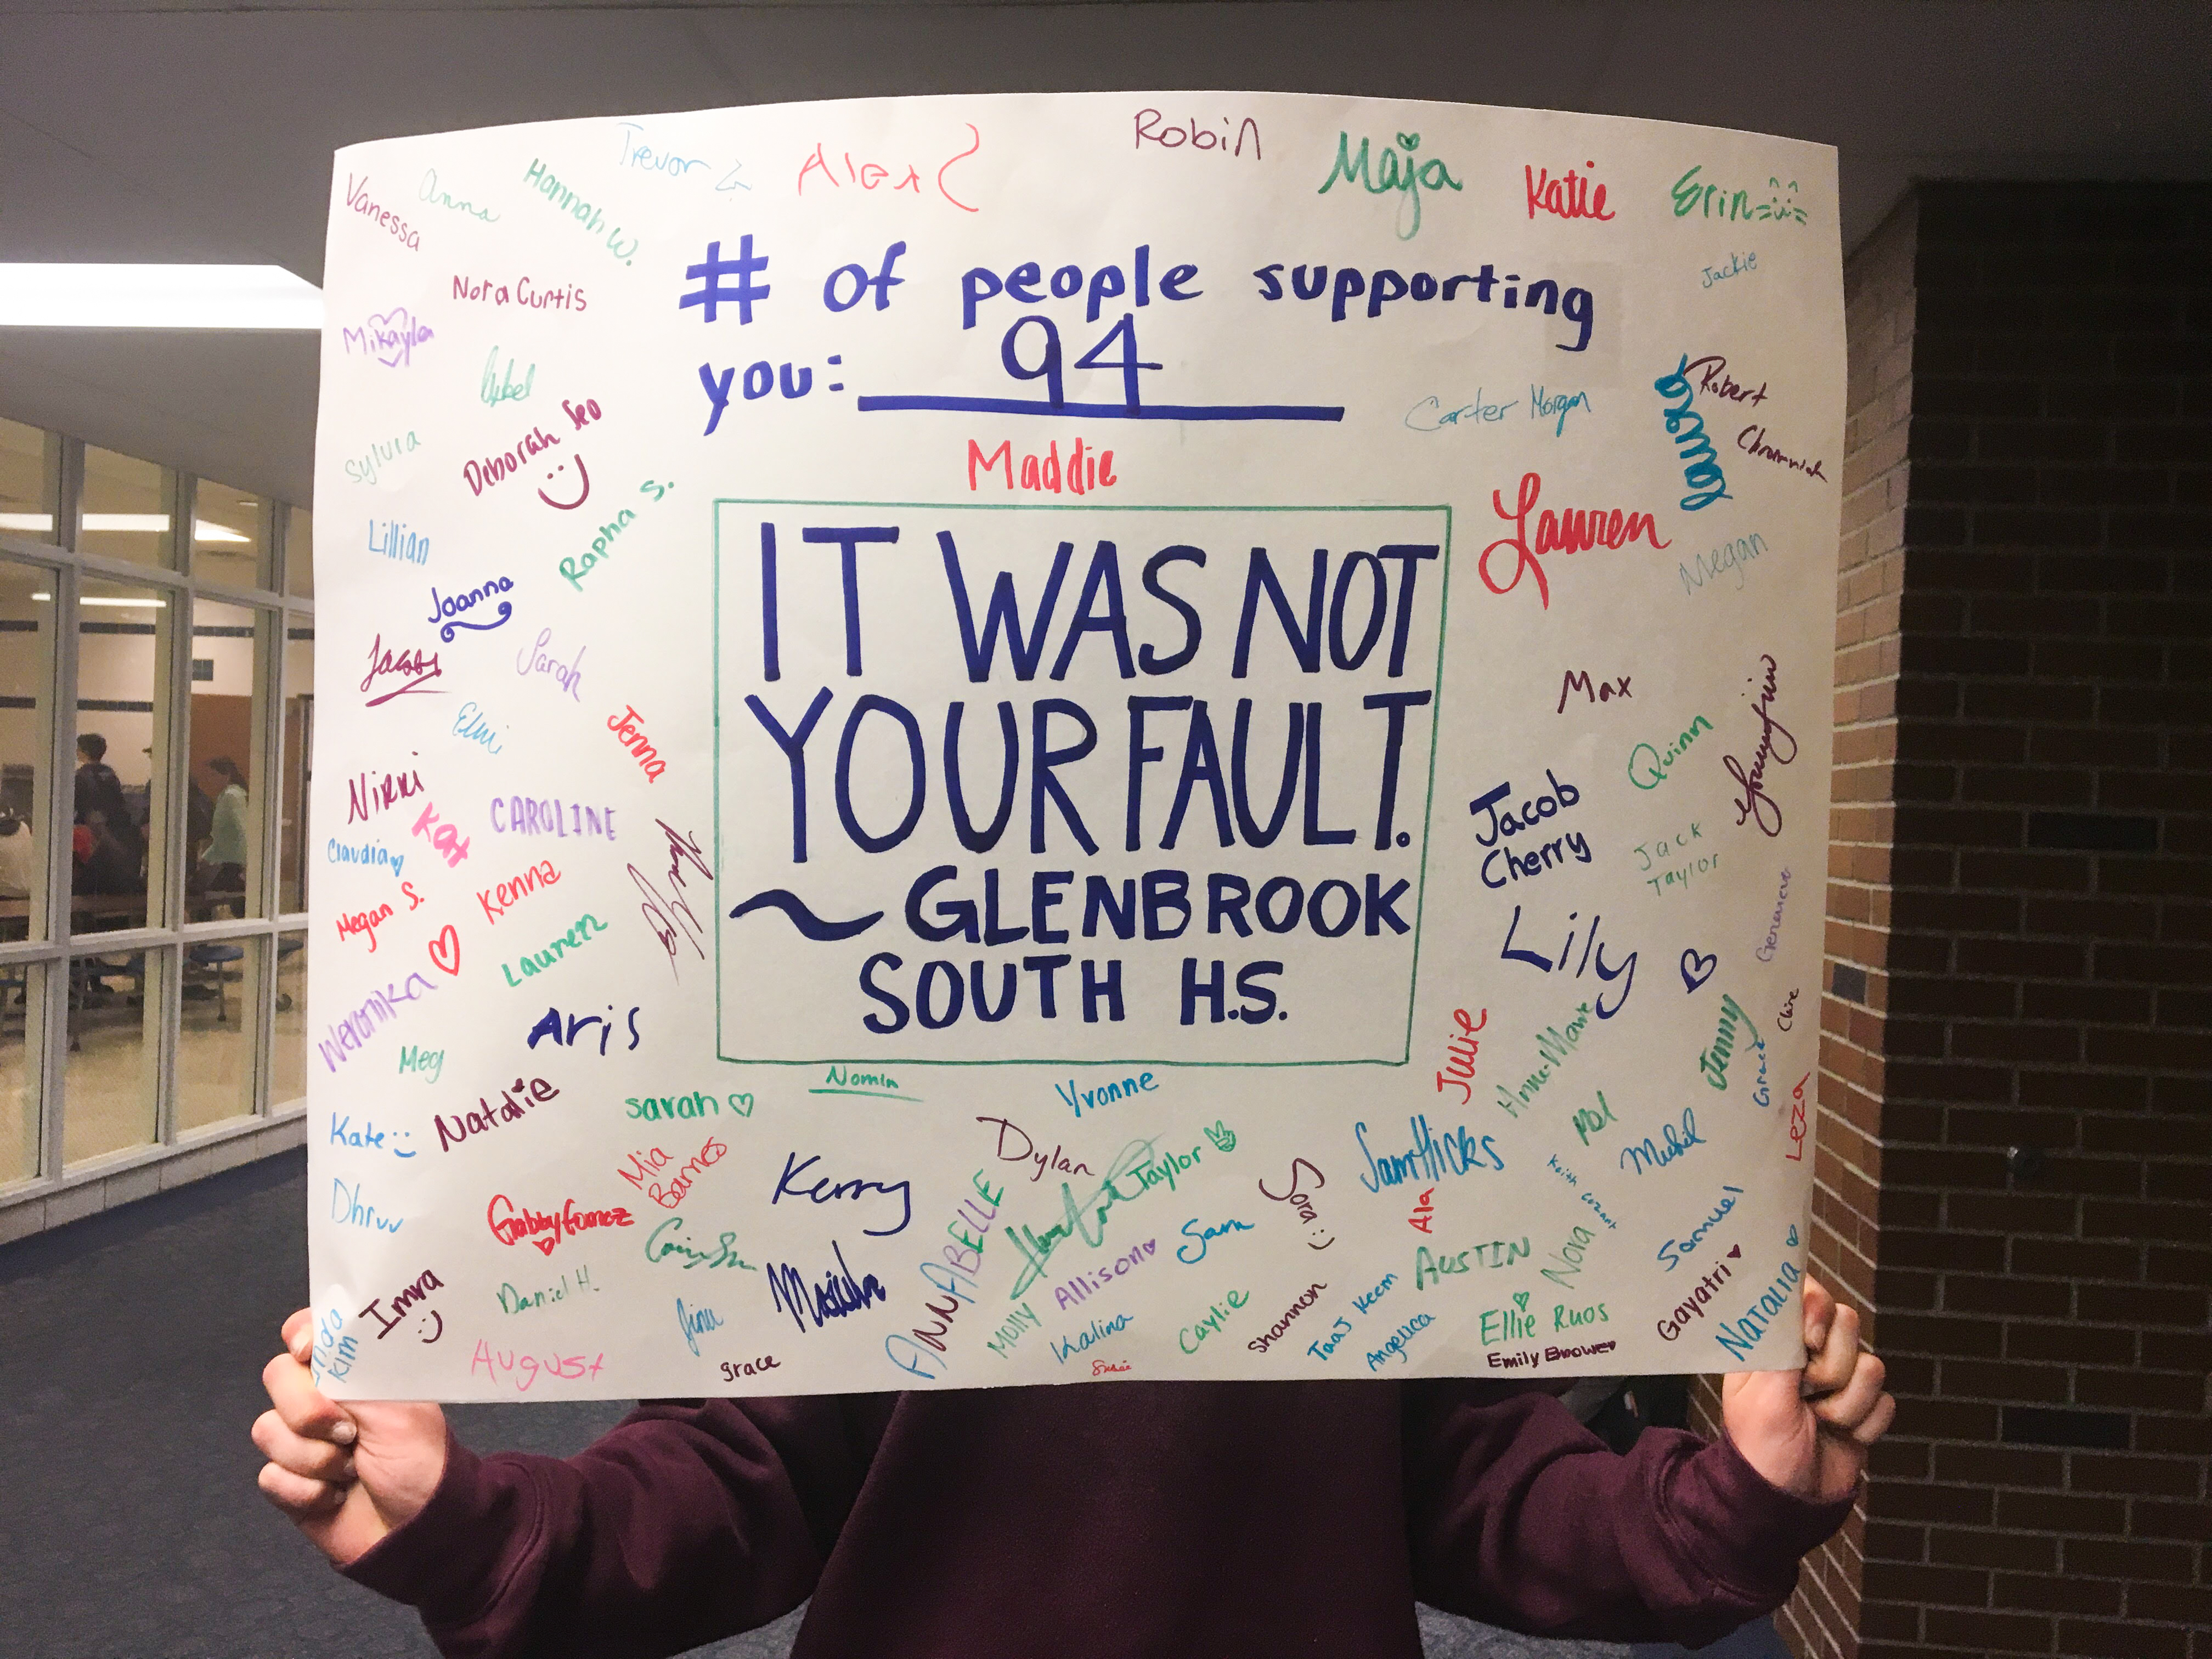 Robin
Trevor
Alex
Maja
Katie
Erin
Vanessa
Anna
Hannah W.
Jackie
# of people supporting
you: 94
Nora Curtis
Mikayla
Robert
Carter Morgan
Laura
Sylvia
Deborah Seo
Maddie
Rapha S.
Lauren
Megan
Lillian
Joanna
IT WAS NOT
YOUR FAULT.
~ GLENBROOK
SOUTH H.S.
Sarah
Max
Jenna
Quinn
Nikki
Kat
CAROLINE
Jacob
Cherry
Claudia
Jack
Taylor
Megan S.
Kenna
Lauren
Lily
Genevieve
Veronika
Aris
Claire
Meg
Julie
Anne-Marie
Jenny
Grace
Natalie
Sarah
Nomin
Yvonne
Leza
Kate
Mia
Barnes
Dylan
Taylor
Sam Hicks
Dhruv
Gabby Gomez
Kerry
ANNABELLE
Sora
Ala
Keith Cozart
Samuel
Imra
Daniel H.
Allison
Sam
AUSTIN
Nora
Gayatri
NATALIA
Kim
Gina
Molly
Kalina
Caylie
Shannon
Taaj Keem
Angelica
Ellie Ruos
August
grace
Emily Brower